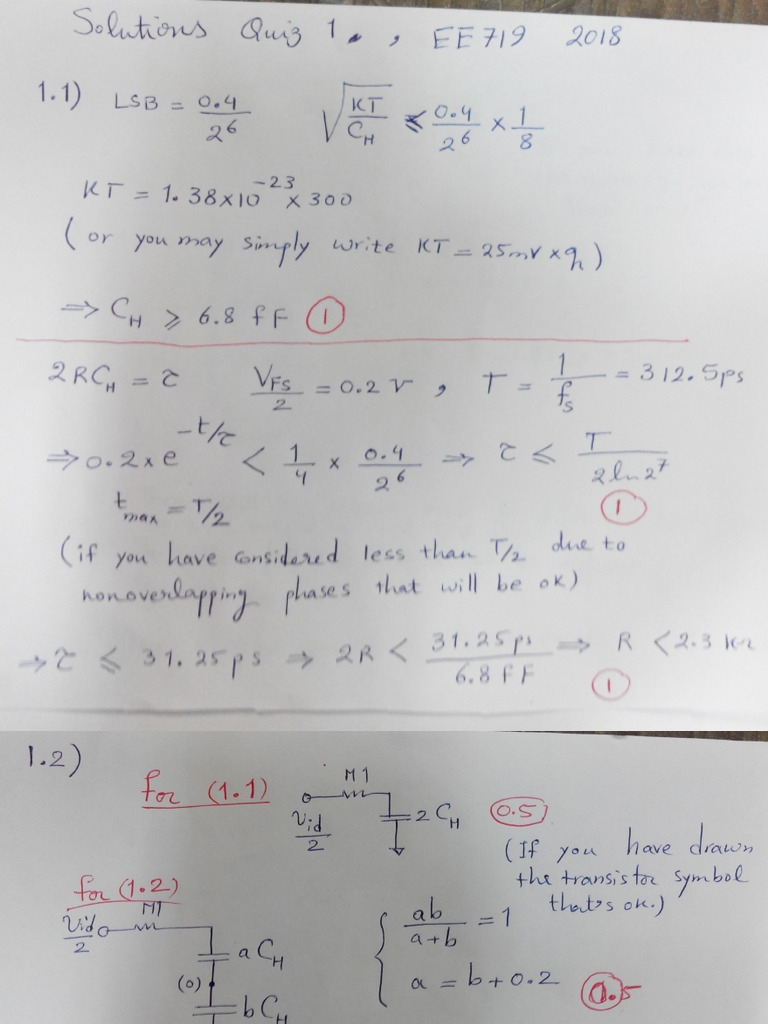 Solutions Quiz 1. , EE719 2018
1.1) LSB = 0.4/2^6 √(KT/C_H) ≤ 0.4/2^6 × 1/8
KT = 1.38×10^-23 × 300
(or you may simply write KT = 25mV × q)
⇒ C_H ≥ 6.8 fF 1
2RC_H = τ V_FS/2 = 0.2 V , T = 1/f_s = 312.5ps
⇒ 0.2 × e^-t/τ < 1/4 × 0.4/2^6 ⇒ τ ≤ T/(2 ln 2^7)
t_max = T/2 1
(if you have considered less than T/2 due to
nonoverlapping phases that will be ok)
⇒ τ ≤ 31.25ps ⇒ 2R < 31.25ps/6.8 FF ⇒ R < 2.3 KΩ
1
1.2)
for (1.1) M1
Vid/2 2 C_H 0.5
(If you have drawn
the transistor symbol
that's ok.)
for (1.2)
M1
Vid/2
a C_H
(0)
b C_H
{ ab/(a+b) = 1
a = b + 0.2